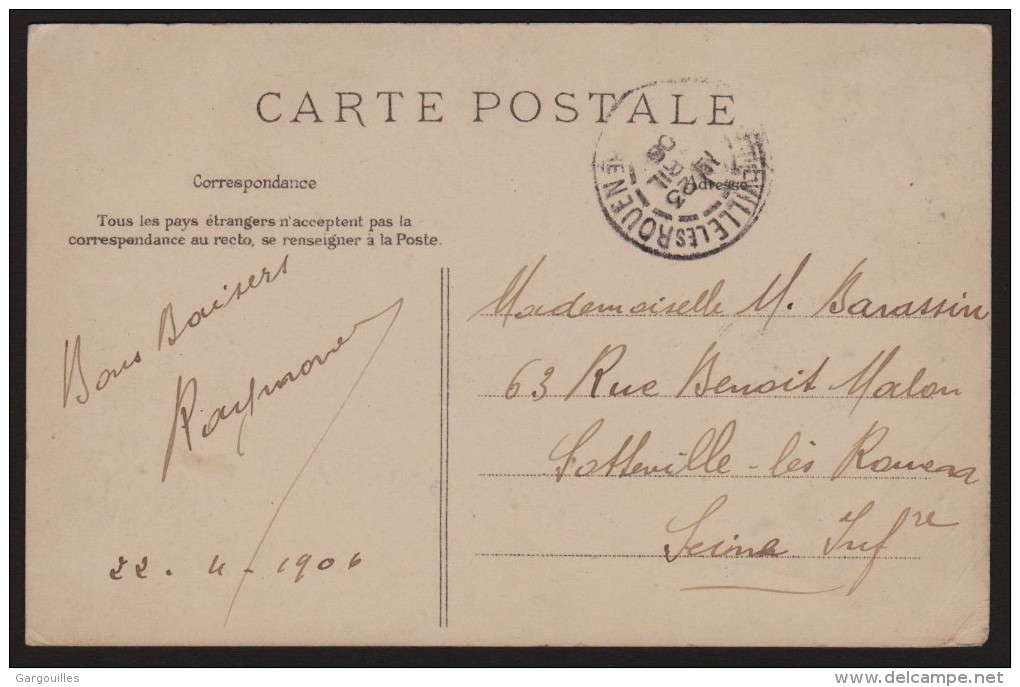 CARTE POSTALE
Correspondance
Adresse
Tous les pays étrangers n'acceptent pas la
correspondance au recto, se renseigner à la Poste.
SOTTEVILLE LÈS ROUEN
AVRIL
06
Bons Baisers
Raymond
22 - 4 - 1906
Mademoiselle M. Barassin
63 Rue Benoit Malon
Sotteville-lès Rouen
Seine Infre
Gargouilles
www.delcampe.net